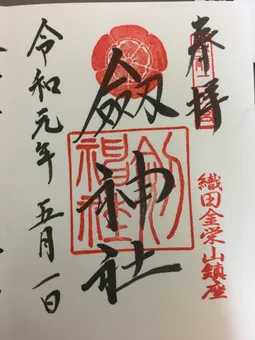 奉拝
織田金栄山鎮座
劔神社
劔神社
令和元年五月一日